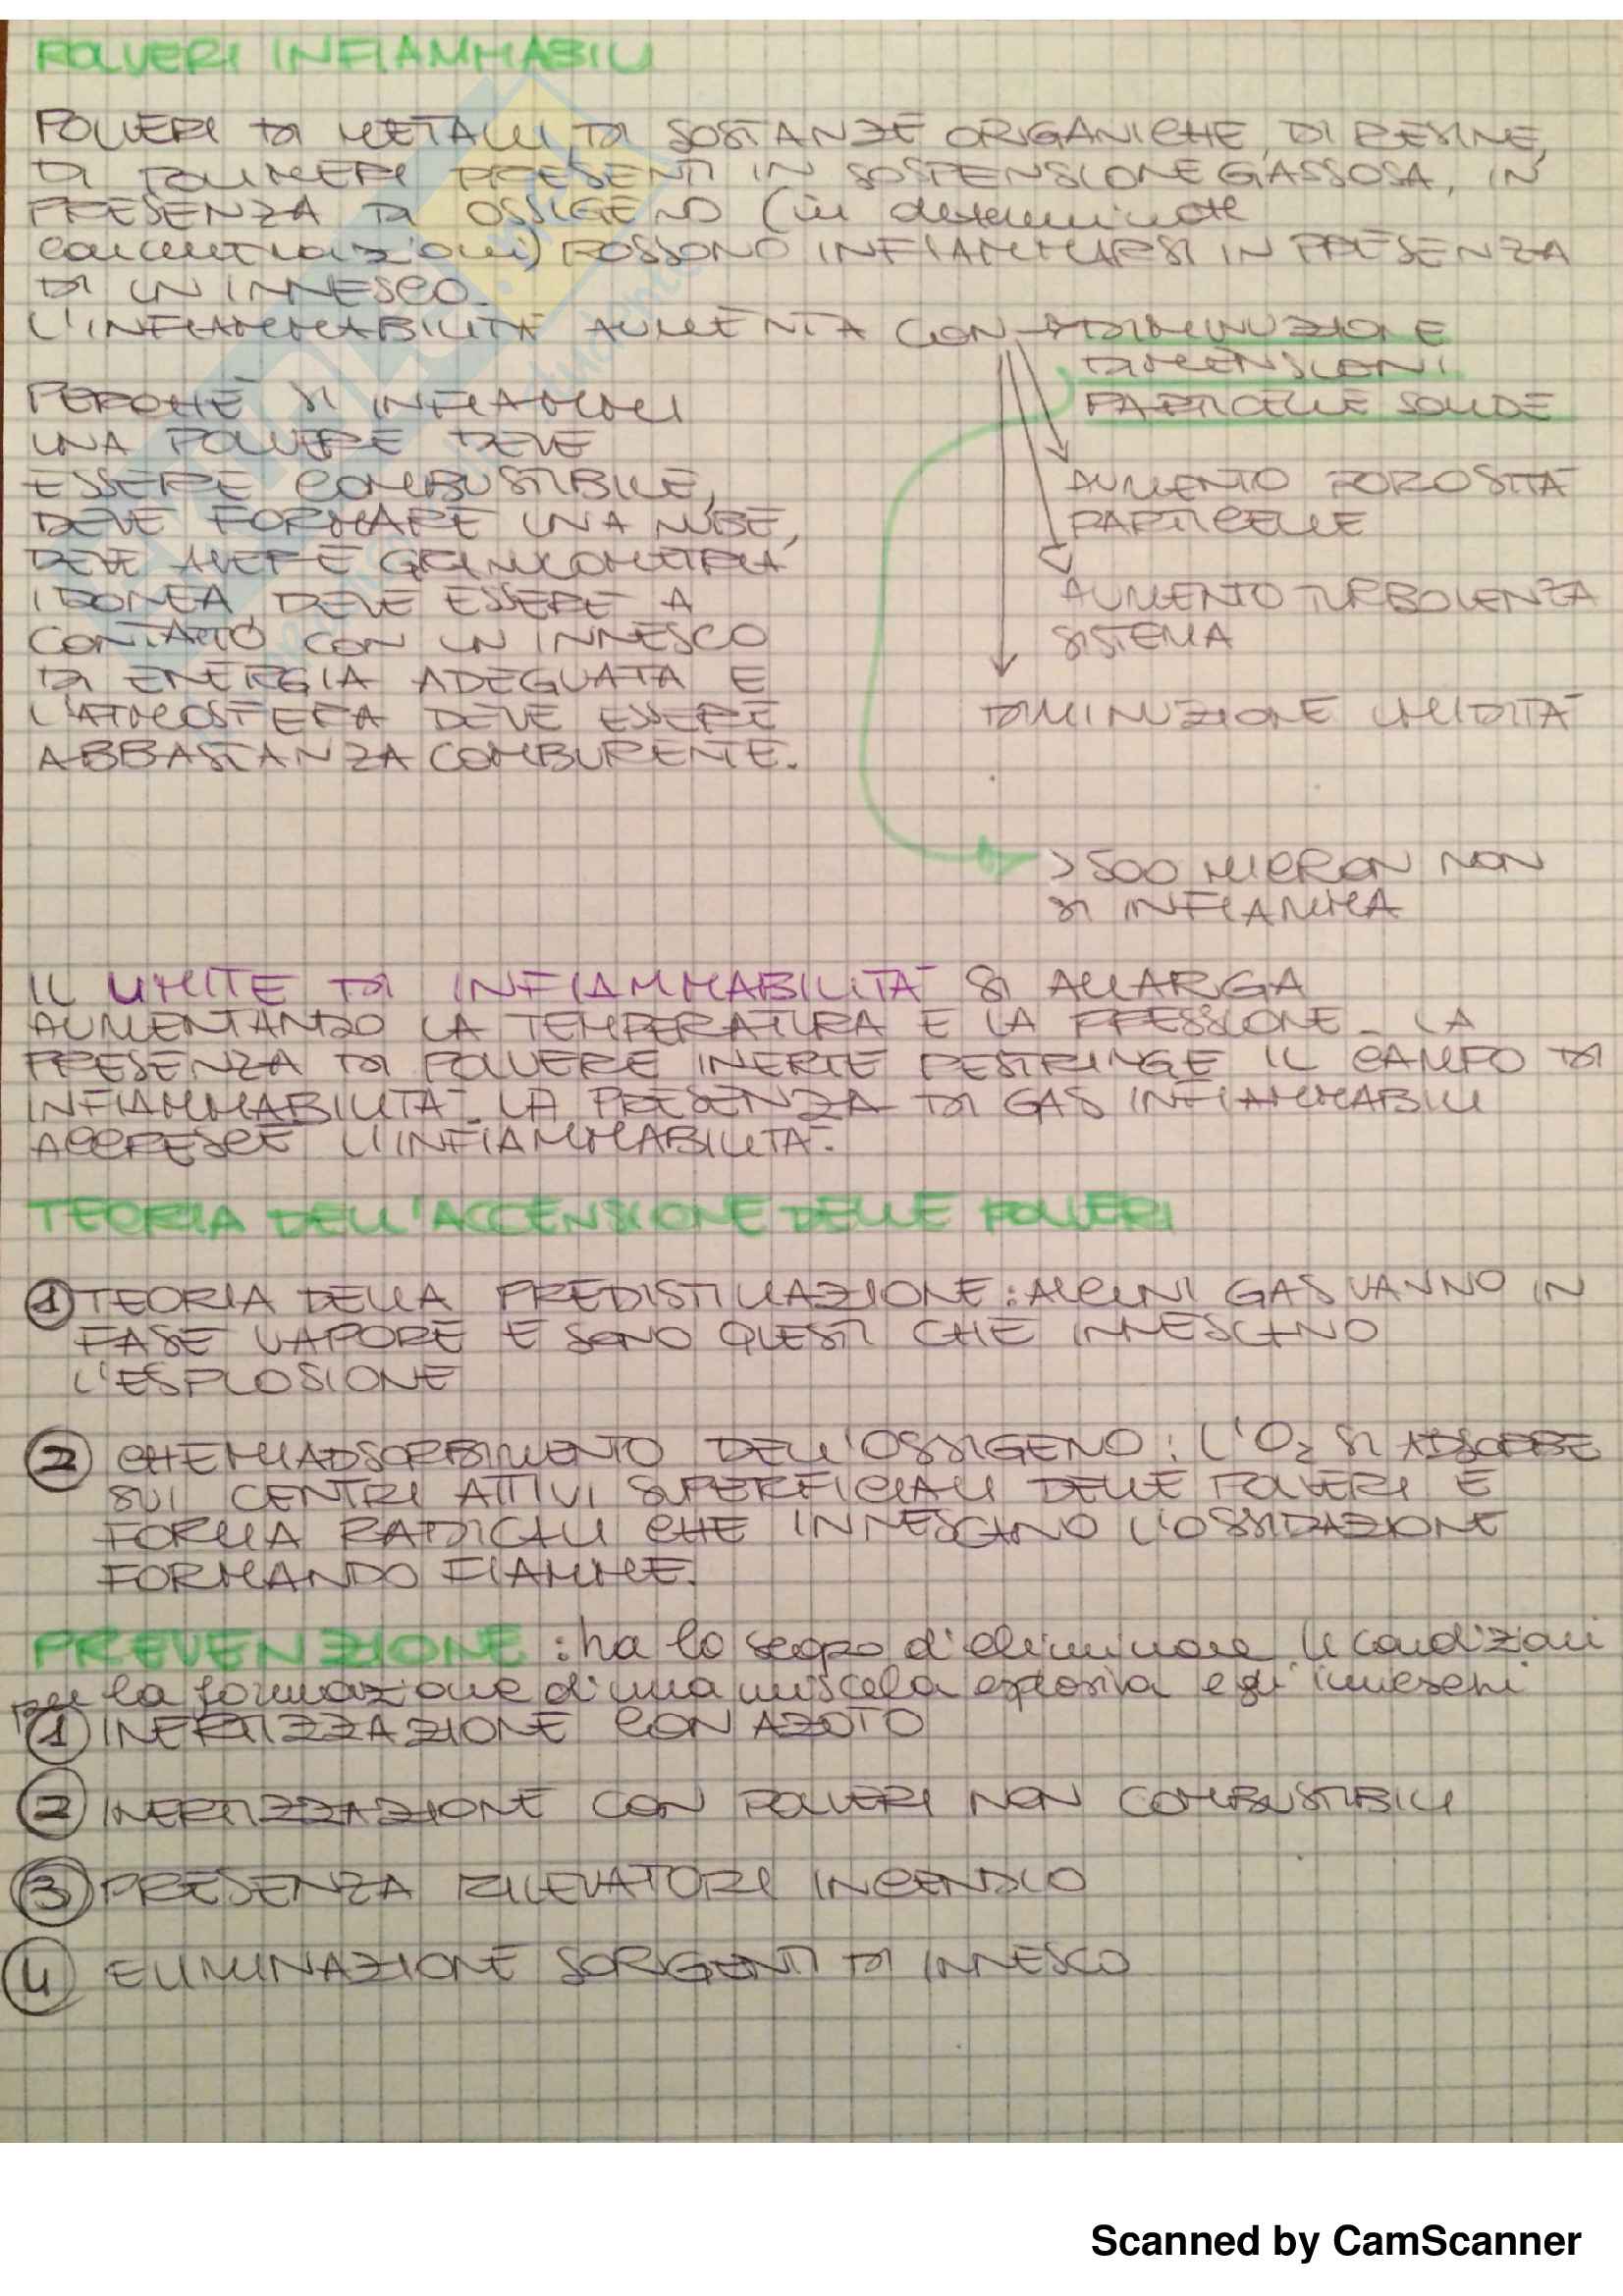 POLVERI INFIAMMABILI
POLVERI DI METALLI, DI SOSTANZE ORGANICHE, DI RESINE,
DI POLIMERI PRESENTI IN SOSPENSIONE GASSOSA, IN
PRESENZA DI OSSIGENO (in determinate
concentrazioni) POSSONO INFIAMMARSI IN PRESENZA
DI UN INNESCO.
L'INFIAMMABILITÀ AUMENTA CON → DIMINUZIONE
DIMENSIONI
PARTICELLE SOLIDE
AUMENTO POROSITÀ
PARTICELLE
AUMENTO TURBOLENZA
SISTEMA
DIMINUZIONE UMIDITÀ
>500 MICRON NON
SI INFIAMMA
PERCHÈ SI INFIAMMI
UNA POLVERE DEVE
ESSERE COMBUSTIBILE,
DEVE FORMARE UNA NUBE,
DEVE AVERE GRANULOMETRIA
IDONEA, DEVE ESSERE A
CONTATTO CON UN INNESCO
DI ENERGIA ADEGUATA E
L'ATMOSFERA DEVE ESSERE
ABBASTANZA COMBURENTE.
IL LIMITE DI INFIAMMABILITÀ SI ALLARGA
AUMENTANDO LA TEMPERATURA E LA PRESSIONE. LA
PRESENZA DI POLVERE INERTE RESTRINGE IL CAMPO DI
INFIAMMABILITÀ. LA PRESENZA DI GAS INFIAMMABILI
ACCRESCE L'INFIAMMABILITÀ.
TEORIA DELL'ACCENSIONE DELLE POLVERI
1 TEORIA DELLA PREDISTILLAZIONE: ALCUNI GAS VANNO IN
FASE VAPORE E SONO QUESTI CHE INNESCANO
L'ESPLOSIONE
2 CHEMIADSORBIMENTO DELL'OSSIGENO: L'O₂ SI ADSORBE
SUI CENTRI ATTIVI SUPERFICIALI DELLE POLVERI E
FORMA RADICALI CHE INNESCANO L'OSSIDAZIONE
FORMANDO FIAMME.
PREVENZIONE: ha lo scopo d'eliminare le condizioni
per la formazione d'una miscela esplosiva e gli inneschi
1 INERTIZZAZIONE CON AZOTO
2 INERTIZZAZIONE CON POLVERI NON COMBUSTIBILI
3 PRESENZA RILEVATORI INCENDIO
4 ELIMINAZIONE SORGENTI DI INNESCO
Scanned by CamScanner